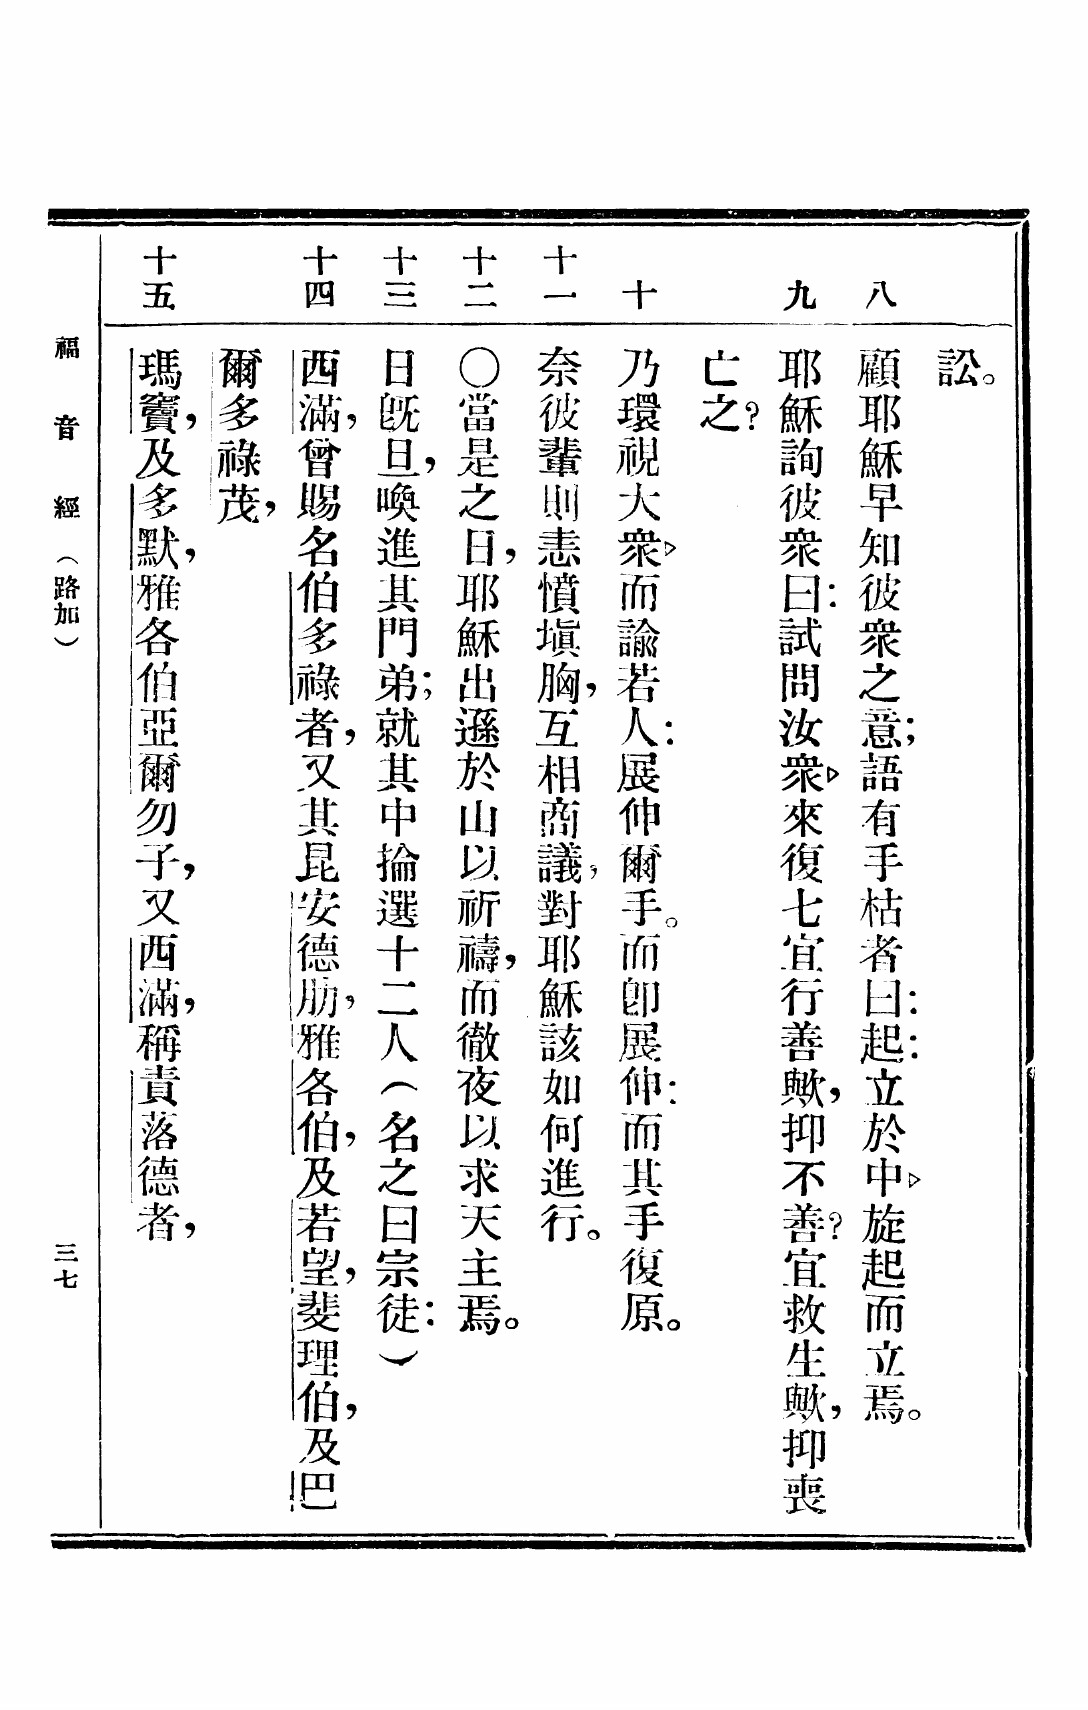 訟。
八
顧耶穌早知彼衆之意;語有手枯者曰:起:立於中▷旋起而立焉。
九
耶穌詢彼衆曰:試問汝衆▷來復七宜行善歟,抑不善?宜救生歟,抑喪
亡之?
十
乃環視大衆▷而諭若人:展伸爾手。而卽展伸:而其手復原。
十一
奈彼輩則恚憤塡胸,互相商議,對耶穌該如何進行。
十二
〇當是之日,耶穌出遜於山以祈禱,而徹夜以求天主焉。
十三
日旣旦,喚進其門弟;就其中掄選十二人(名之曰宗徒:)
十四
西滿,曾賜名伯多祿者,又其昆安德肋,雅各伯,及若望,斐理伯,及巴
爾多祿茂,
十五
瑪竇,及多默,雅各伯亞爾勿子,又西滿,稱責落德者,
福音經(路加)
三七